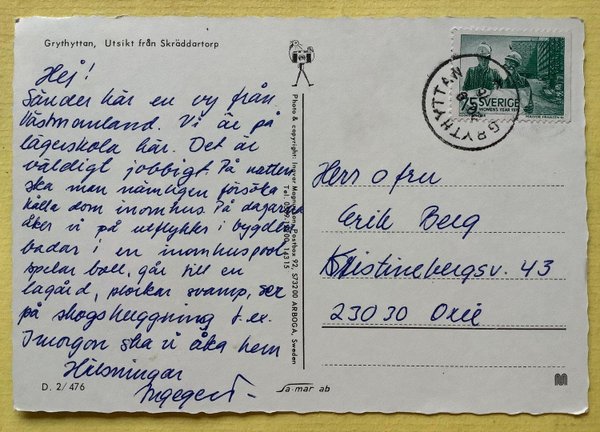 Grythyttan, Utsikt från Skräddartorp
Hej!
Sänder här en vy från
Västmanland. Vi är på
lägerskola här. Det är
väldigt jobbigt. På natten
ska man nämligen försöka
hålla dom inomhus. På dagarna
åker vi på utflykter i bygden
badar i en inomhuspool
spelar boll, går till en
lagård, plockar svamp, ser
på skogshuggning t.ex.
Imorgon ska vi åka hem
Hälsningar
Ingegerd
D. 2/476
Photo & copyright: Ingvar Postbox 92, 573200 ARBOGA, Sweden
Tel.
Sa-mar ab
75 SVERIGE
WOMENS YEAR 1975
GRYTHYTTAN
Herr o fru
Erik Berg
Kristinebergsv. 43
23030 Oxie
M